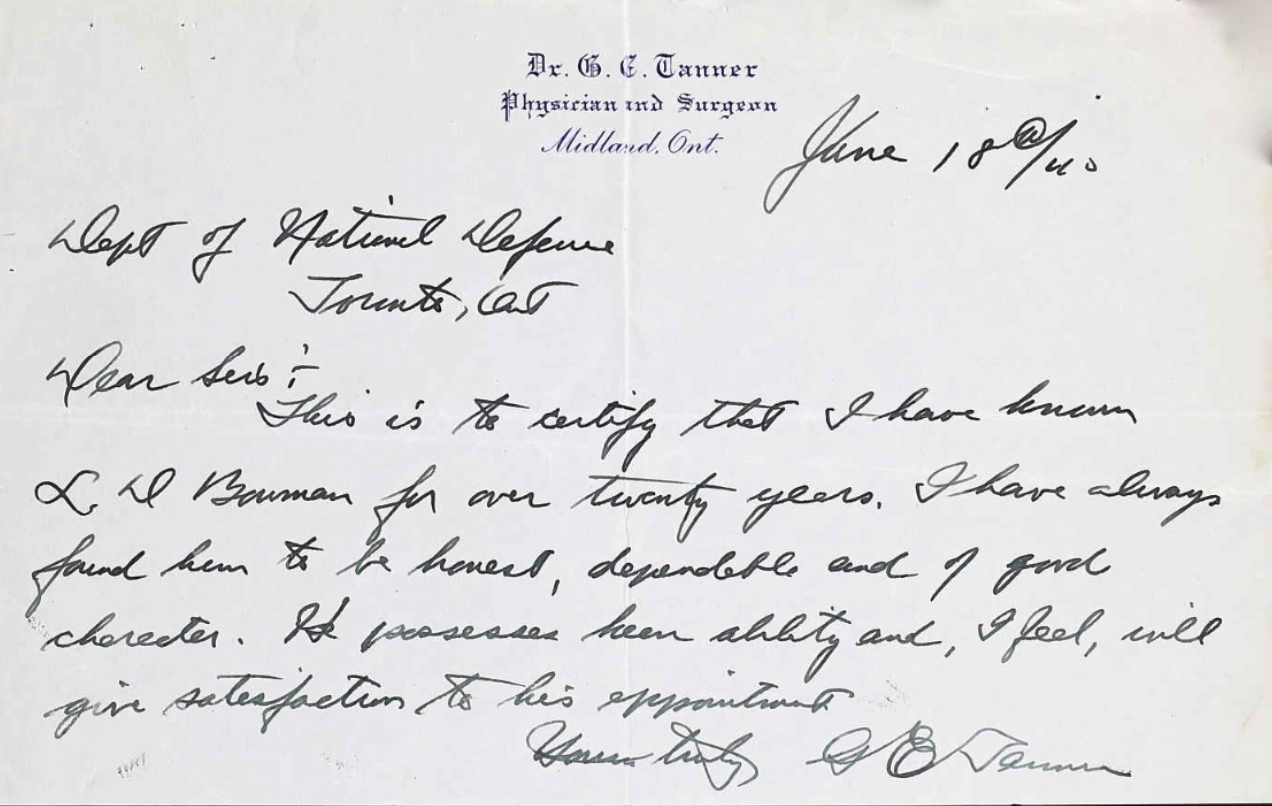 Dr. G. E. Tanner
Physician and Surgeon
Midland, Ont.
June 18th/40
Dept of National Defense
Toronto, Ont
Dear Sirs :-
This is to certify that I have known
L. D Bowman for over twenty years. I have always
found him to be honest, dependable and of good
character. He possesses keen ability and, I feel, will
give satisfaction to his appointment
Yours truly G E Tanner